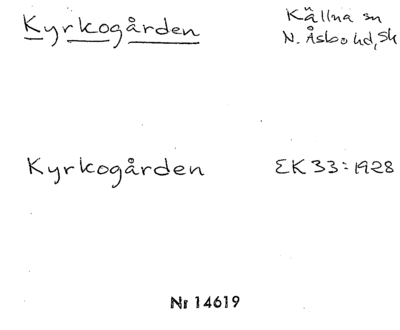 Kyrkogården
Källna sn
N. Åsbo hd, Sk
Kyrkogården
EK 33:1928
Nr 14619